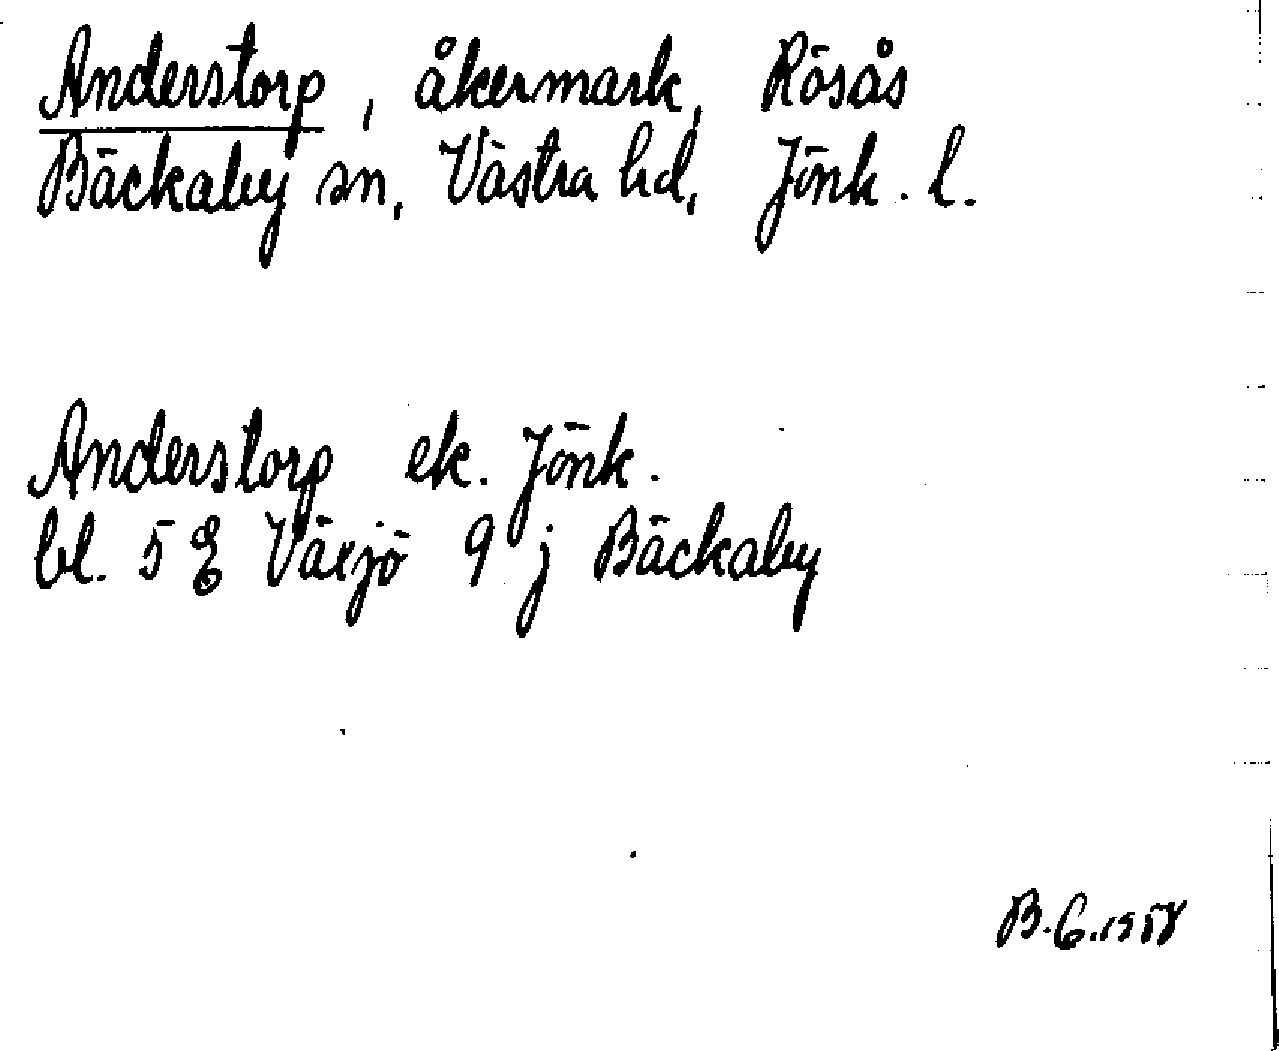 Anderstorp, åkermark, Rösås
Bäckaby sn, Västra hd, Jönk. l.
Anderstorp ek. Jönk.
bl. 5 E Växjö 9 j Bäckaby
B.G. 1958